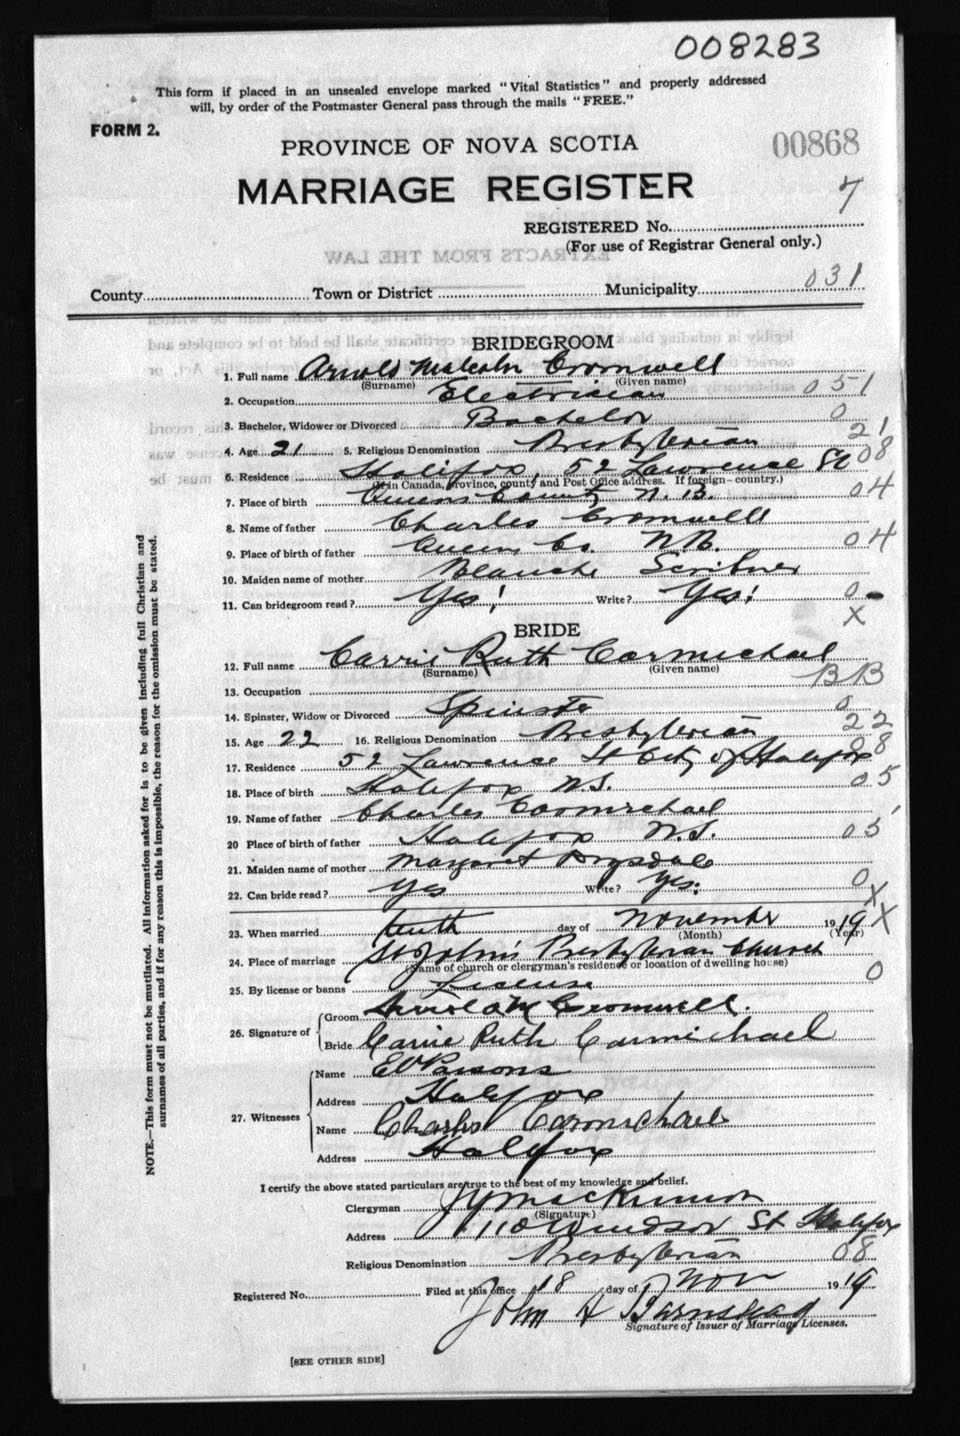 008283
This form if placed in an unsealed envelope marked "Vital Statistics" and properly addressed
will, by order of the Postmaster General pass through the mails "FREE."
FORM 2.
PROVINCE OF NOVA SCOTIA
00868
MARRIAGE REGISTER
7
REGISTERED No.
(For use of Registrar General only.)
EXTRACTS FROM THE LAW
County Town or District Municipality 031
BRIDEGROOM
1. Full name Arnold Malcolm Cromwell
(Surname) (Given name)
2. Occupation Electrician 051
3. Bachelor, Widower or Divorced Bachelor 0
4. Age 21 5. Religious Denomination Presbyterian 21
6. Residence Halifax, 52 Lawrence St 08
(If in Canada, province, county and Post Office address. If foreign—country.)
7. Place of birth Queens County N.B. 04
8. Name of father Charles Cromwell
9. Place of birth of father Queens Co. N.B. 04
10. Maiden name of mother Blanche Scribner
11. Can bridegroom read? Yes! Write? Yes! 0
X
BRIDE
12. Full name Carrie Ruth Carmichael
(Surname) (Given name)
13. Occupation BB
14. Spinster, Widow or Divorced Spinster 0
15. Age 22 16. Religious Denomination Presbyterian 22
17. Residence 52 Lawrence St City of Halifax 08
18. Place of birth Halifax N.S. 05
19. Name of father Charles Carmichael
20 Place of birth of father Halifax N.S. 05
21. Maiden name of mother Margaret Drysdale
22. Can bride read? Yes Write? Yes. 0
X
23. When married tenth day of November 1919 X
(Month) (Year)
24. Place of marriage St John's Presbyterian Church
(Name of church or clergyman's residence or location of dwelling house)
25. By license or banns License 0
26. Signature of Groom Arnold M Cromwell.
Bride Carrie Ruth Carmichael
27. Witnesses
Name Parsons
Address Halifax
Name Charles Carmichael
Address Halifax
I certify the above stated particulars are true to the best of my knowledge and belief.
Clergyman MacKinnon
(Signature)
Address 110 Windsor St Halifax
Religious Denomination Presbyterian 08
Registered No. Filed at this office 18 day of Nov 1919
John A Barnstead
Signature of Issuer of Marriage Licenses.
[SEE OTHER SIDE]
NOTE.—This form must not be mutilated. All information asked for is to be given including full Christian and
surnames of all parties, and if for any reason this is impossible, the reason for the omission must be stated.